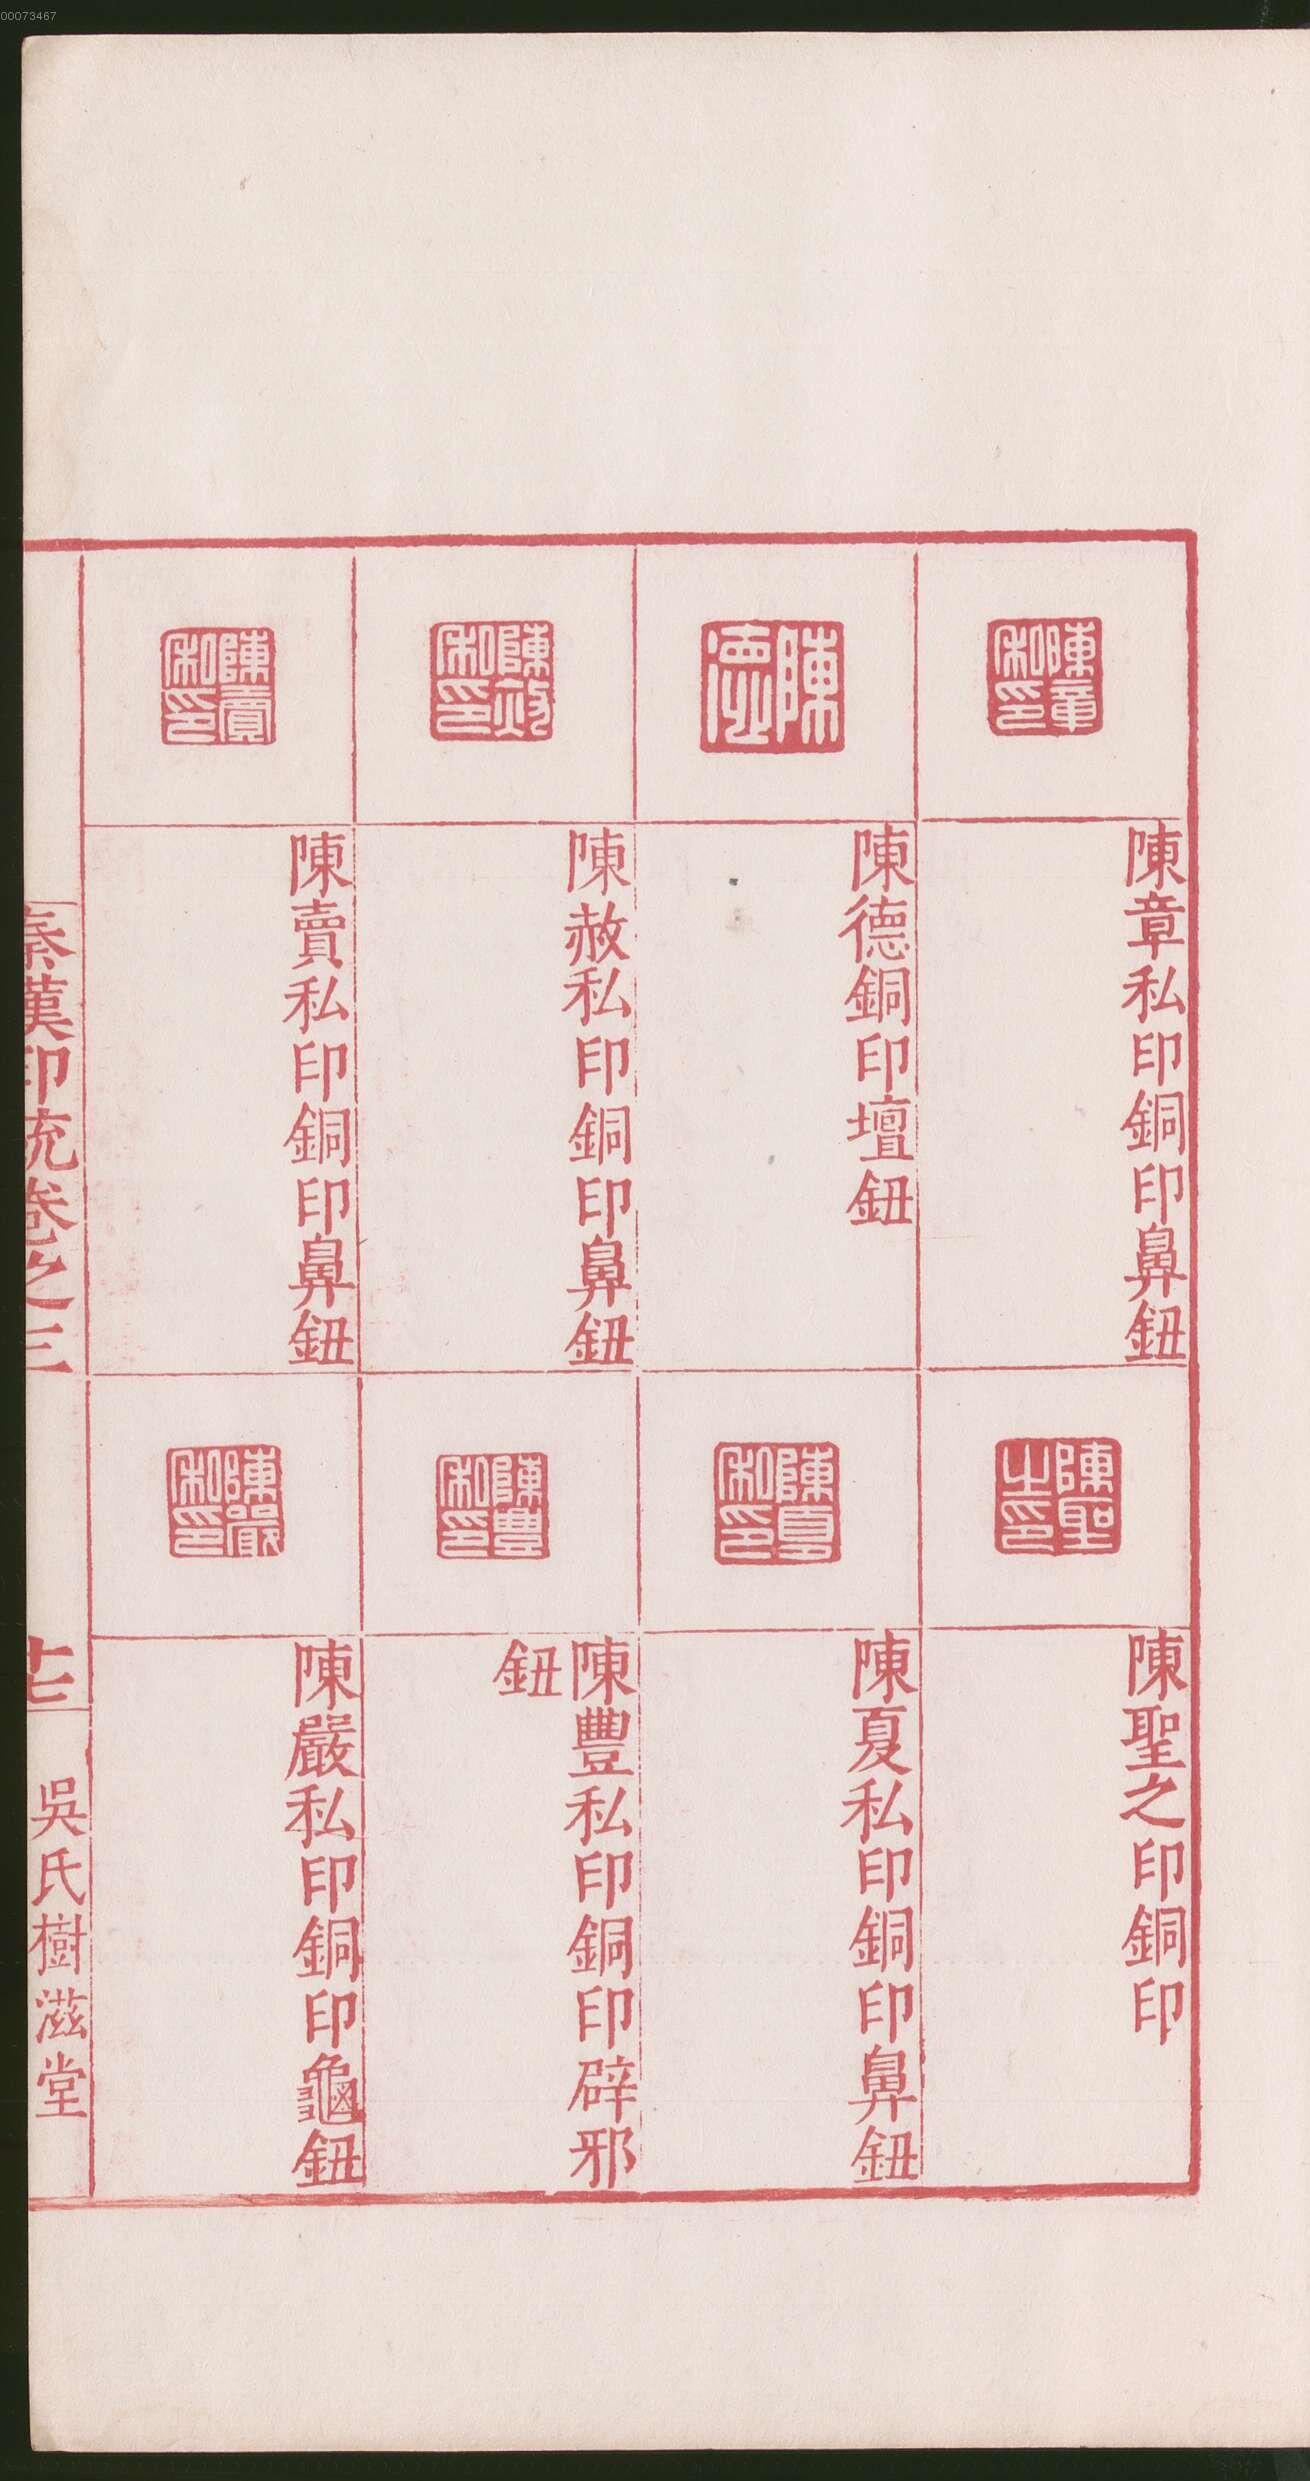 00073467
陳章私印
陳章私印銅印鼻鈕
陳聖之印
陳聖之印銅印
陳德
陳德銅印壇鈕
陳夏私印
陳夏私印銅印鼻鈕
陳赦私印
陳赦私印銅印鼻鈕
陳豐私印
陳豐私印銅印辟邪
鈕
陳賣私印
陳賣私印銅印鼻鈕
陳嚴私印
陳嚴私印銅印龜鈕
秦漢印統卷之三
十七
吳氏樹滋堂